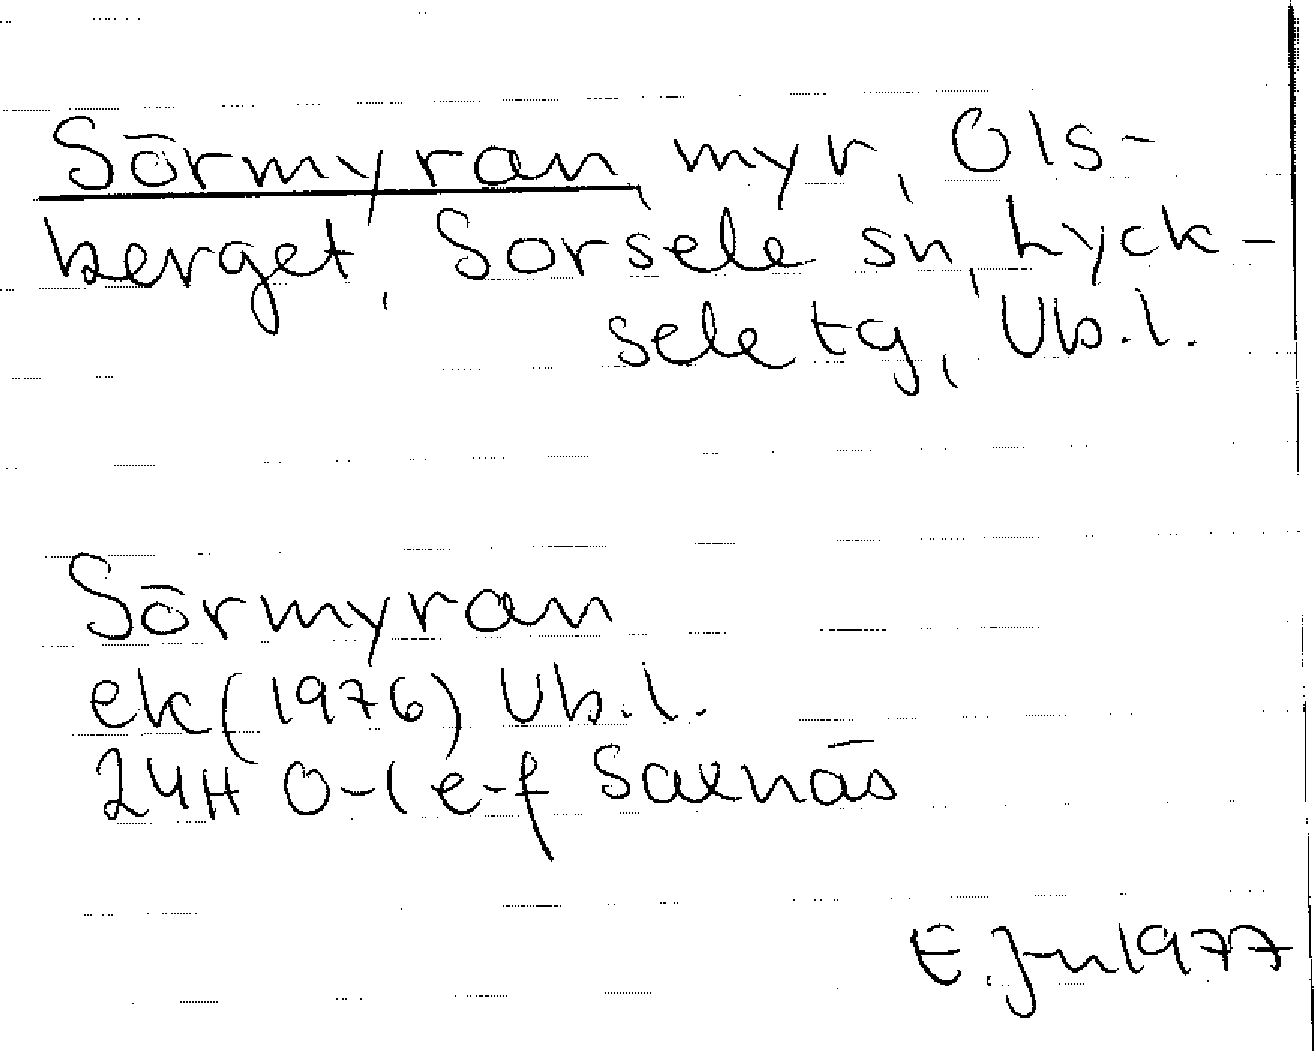 Sörmyran, myr, Ols-
berget, Sorsele sn, Lyck-
sele tg, Vb.l.
Sörmyran
ek (1976) Vb.l.
24H 0-1 e-f Saxnäs
E. J-n 1977